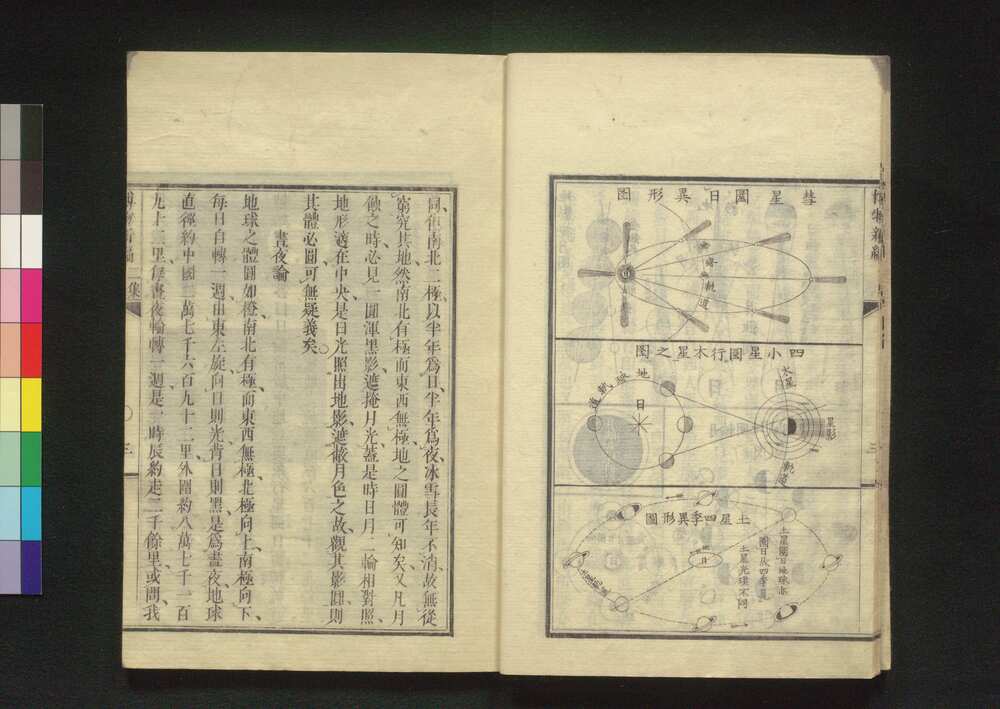 彗星圜日異形圖
彗星軌道
日
四小星圜行木星之圖
木星
星影
軌道
地球軌道
日
土星四季異形圖
土星圜日地球亦
圜日故四季見
土星光環不同
日
博物新編
三
同徃南北二極以半年爲日半年爲夜冰雪長年不消故無從
窮究其地然南北有極而東西無極地之圓體可知矣又凡月
蝕之時必見一圓渾黑影遮掩月光蓋是時日月二輪相對照
地形適在中央是日光照出地影遮蔽月色之故觀其影圓則
其體必圓可無疑義矣
晝夜論
地球之體圓如橙南北有極而東西無極北極向上南極向下
每日自轉一週由東左旋向日則光背日則黑是爲晝夜地球
直徑約中國二萬七千六百九十二里外圍約八萬七千一百
九十二里每晝夜輪轉一週是一時辰約走二千餘里或問我
博物新編二集
三